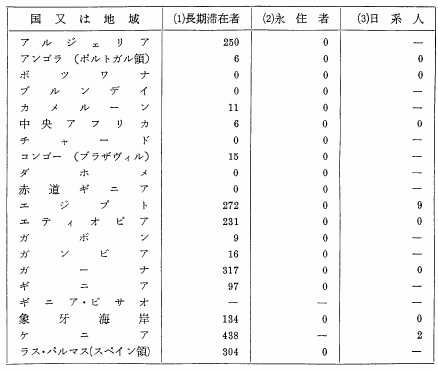 国又は地域 (1)長期滞在者 (2)永住者 (3)日系人
アルジェリア 250 0 —
アンゴラ(ポルトガル領) 6 0 0
ボツワナ 0 0 0
ブルンデイ 0 0 —
カメルーン 11 0 —
中央アフリカ 6 0 0
チャード 0 0 —
コンゴー(ブラザヴィル) 15 0 —
ダホメ 0 0 —
赤道ギニア 0 0 —
エジプト 272 0 9
エティオピア 231 0 0
ガボン 9 0 —
ガンビア 16 0 —
ガーナ 317 0 0
ギニア 97 0 —
ギニア・ビサオ — — —
象牙海岸 134 0 0
ケニア 438 — 2
ラス・パルマス(スペイン領) 304 0 —